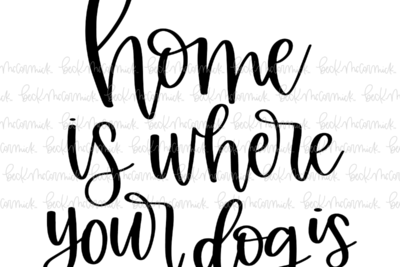 home
is where
your dog is